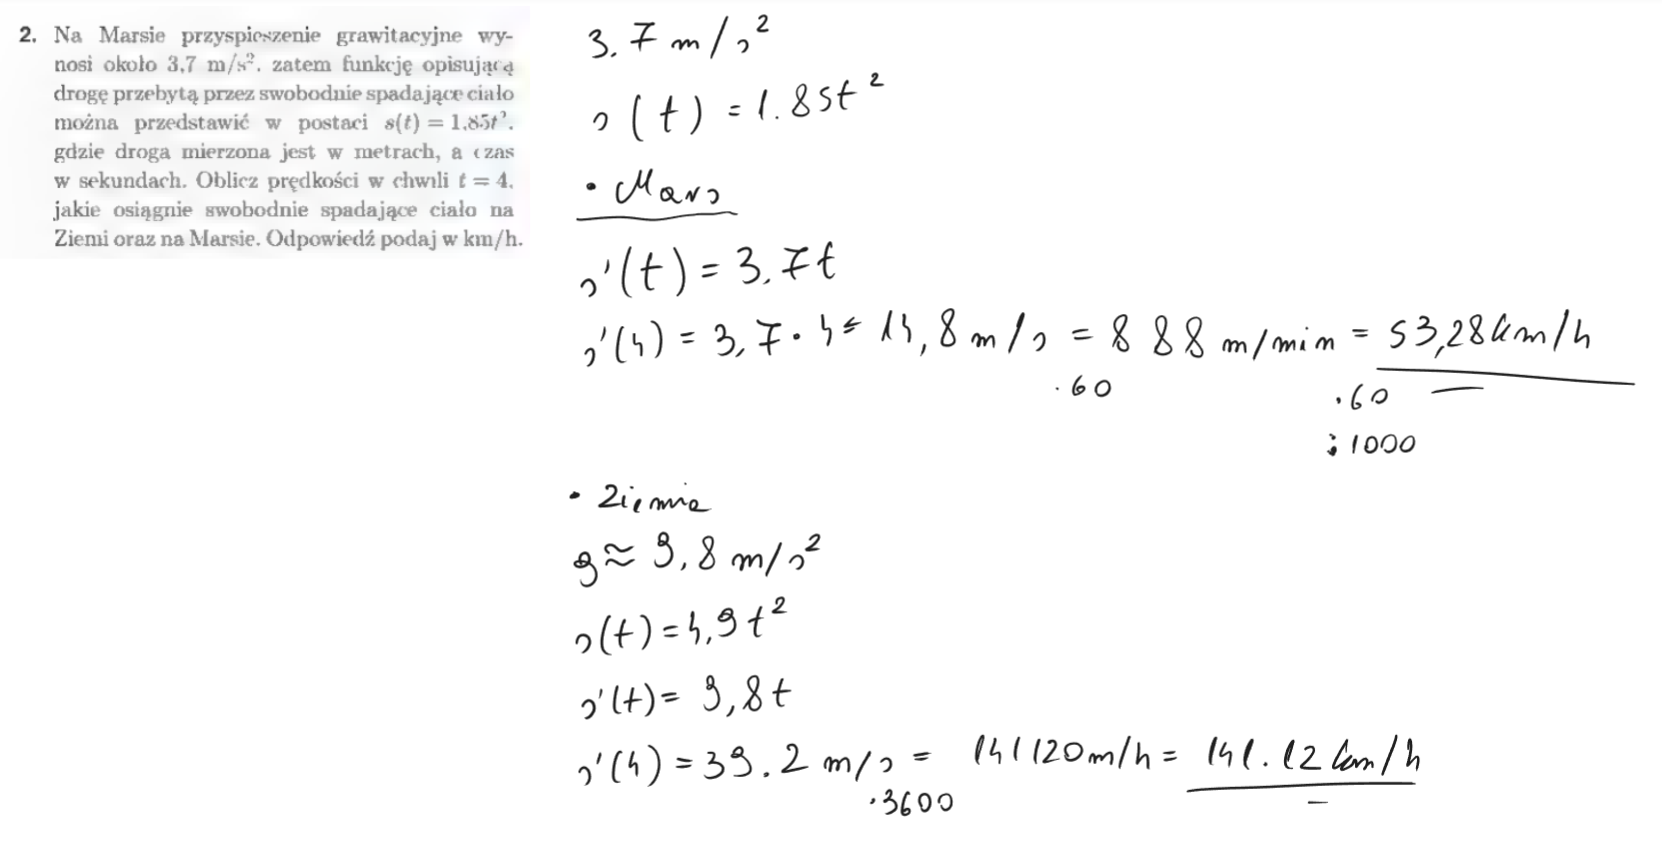 2. Na Marsie przyspieszenie grawitacyjne wy-
nosi około 3,7 m/s², zatem funkcję opisującą
drogę przebytą przez swobodnie spadające ciało
można przedstawić w postaci s(t) = 1,85t²,
gdzie droga mierzona jest w metrach, a czas
w sekundach. Oblicz prędkości w chwili t = 4,
jakie osiągnie swobodnie spadające ciało na
Ziemi oraz na Marsie. Odpowiedź podaj w km/h.
3.7 m/s²
s(t) = 1.85t²
• Mars
s'(t) = 3.7t
s'(4) = 3,7 · 4 = 14,8 m/s = 888 m/min = 53,28 km/h
·60 ·60
:1000
• Ziemia
g ≈ 9,8 m/s²
s(t) = 4,9t²
s'(t) = 9,8t
s'(4) = 39.2 m/s = 141120 m/h = 141.12 km/h
·3600